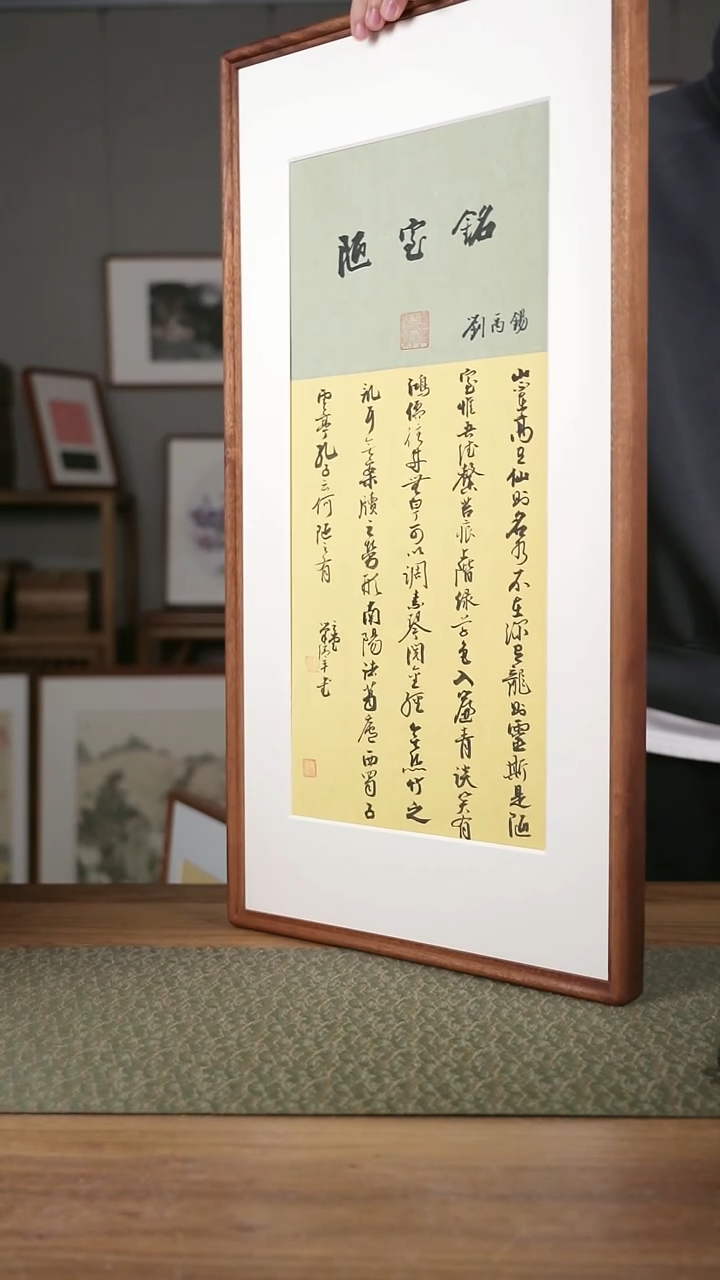 陋室銘
劉禹錫
山不在高有仙則名水不在深有龍則靈斯是陋
室惟吾德馨苔痕上階綠草色入簾青談笑有
鴻儒往來無白丁可以調素琴閱金經無絲竹之
亂耳無案牘之勞形南陽諸葛廬西蜀子
雲亭孔子云何陋之有